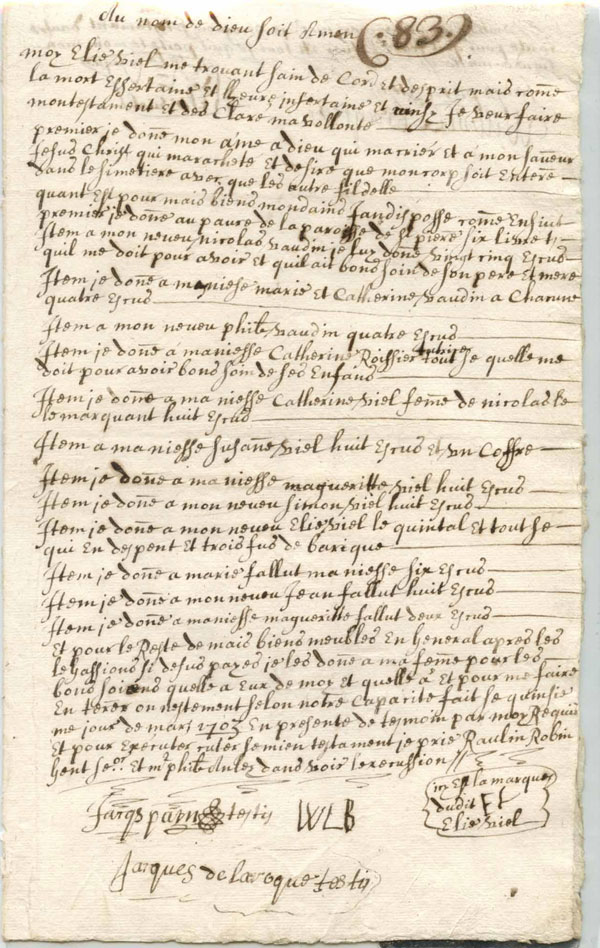 Au nom de dieu soit Amen (: 83.)
moy Elie Viel me trouant sain de Cord Et desprit mais come
la mort Essertaine Et lheure insertaine Et ainsy Je veux faire
montestament Et des Clare ma vollonte
premier je done mon ame a dieu qui ma crier Et a mon saveur
Jesus Christ qui marachete Et desire que mon corp soit Entere
dans le simetiere avec que les autre fidelle
quant Est pour mais biens mondains Jandisposse come Ensint
premier je done au pauvre de la paroisse de st pierre six livre ts
Jtem a mon neveu nicolas vaudin je luy done vingt cinq Escus
quil me doit pour avoir Et quil ait bons soin de son pere Et mere
Jtem je done a maniesse marie Et Catherine vaudin a Chacune
quatre Escus
Jtem a mon neveu philp vaudin quatre Escus
Jtem je done a maniesse Catherine Roissier tout se quelle me
doit pour avoir bons soin de ses Enfans
Jtem je done a ma niesse Catherine viel feme de nicolas le
le marquant huit Escus
Jtem a ma niesse susane viel huit Escus Et un Coffre
Jtem je done a ma niesse magueritte viel huit Escus
Jtem je done a mon neveu simon viel huit Escus
Jtem je done a mon neveu Elie viel le quintal Et tout se
qui En despent Et trois fus de barique
Jtem je done a marie fallut ma niesse six Escus
Jtem je done a mon neveu Jean fallut huit Escus
Jtem je done a maniesse magueritte fallut deux Escus
Et pour le Reste de mais biens meubles En General apres les
legassions si desus payes je les done a ma feme pour les
bons soiens quelle a Eux de moy Et quelle a Et pour me faire
En terer onestement selon notre Capacite fait se quinsie
me jour de mars 1703 En presente de tesmoin par moy Requis
Et pour Executer semien testament je prie Raulin Robin
Gent Et mr philp dans voir lexecussion
Jacqs pain testis WLB
isy Est la marque
dudit
Elie Viel
Jacques de laroque testis